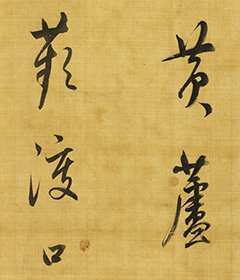 黄蘆
蘋渡口